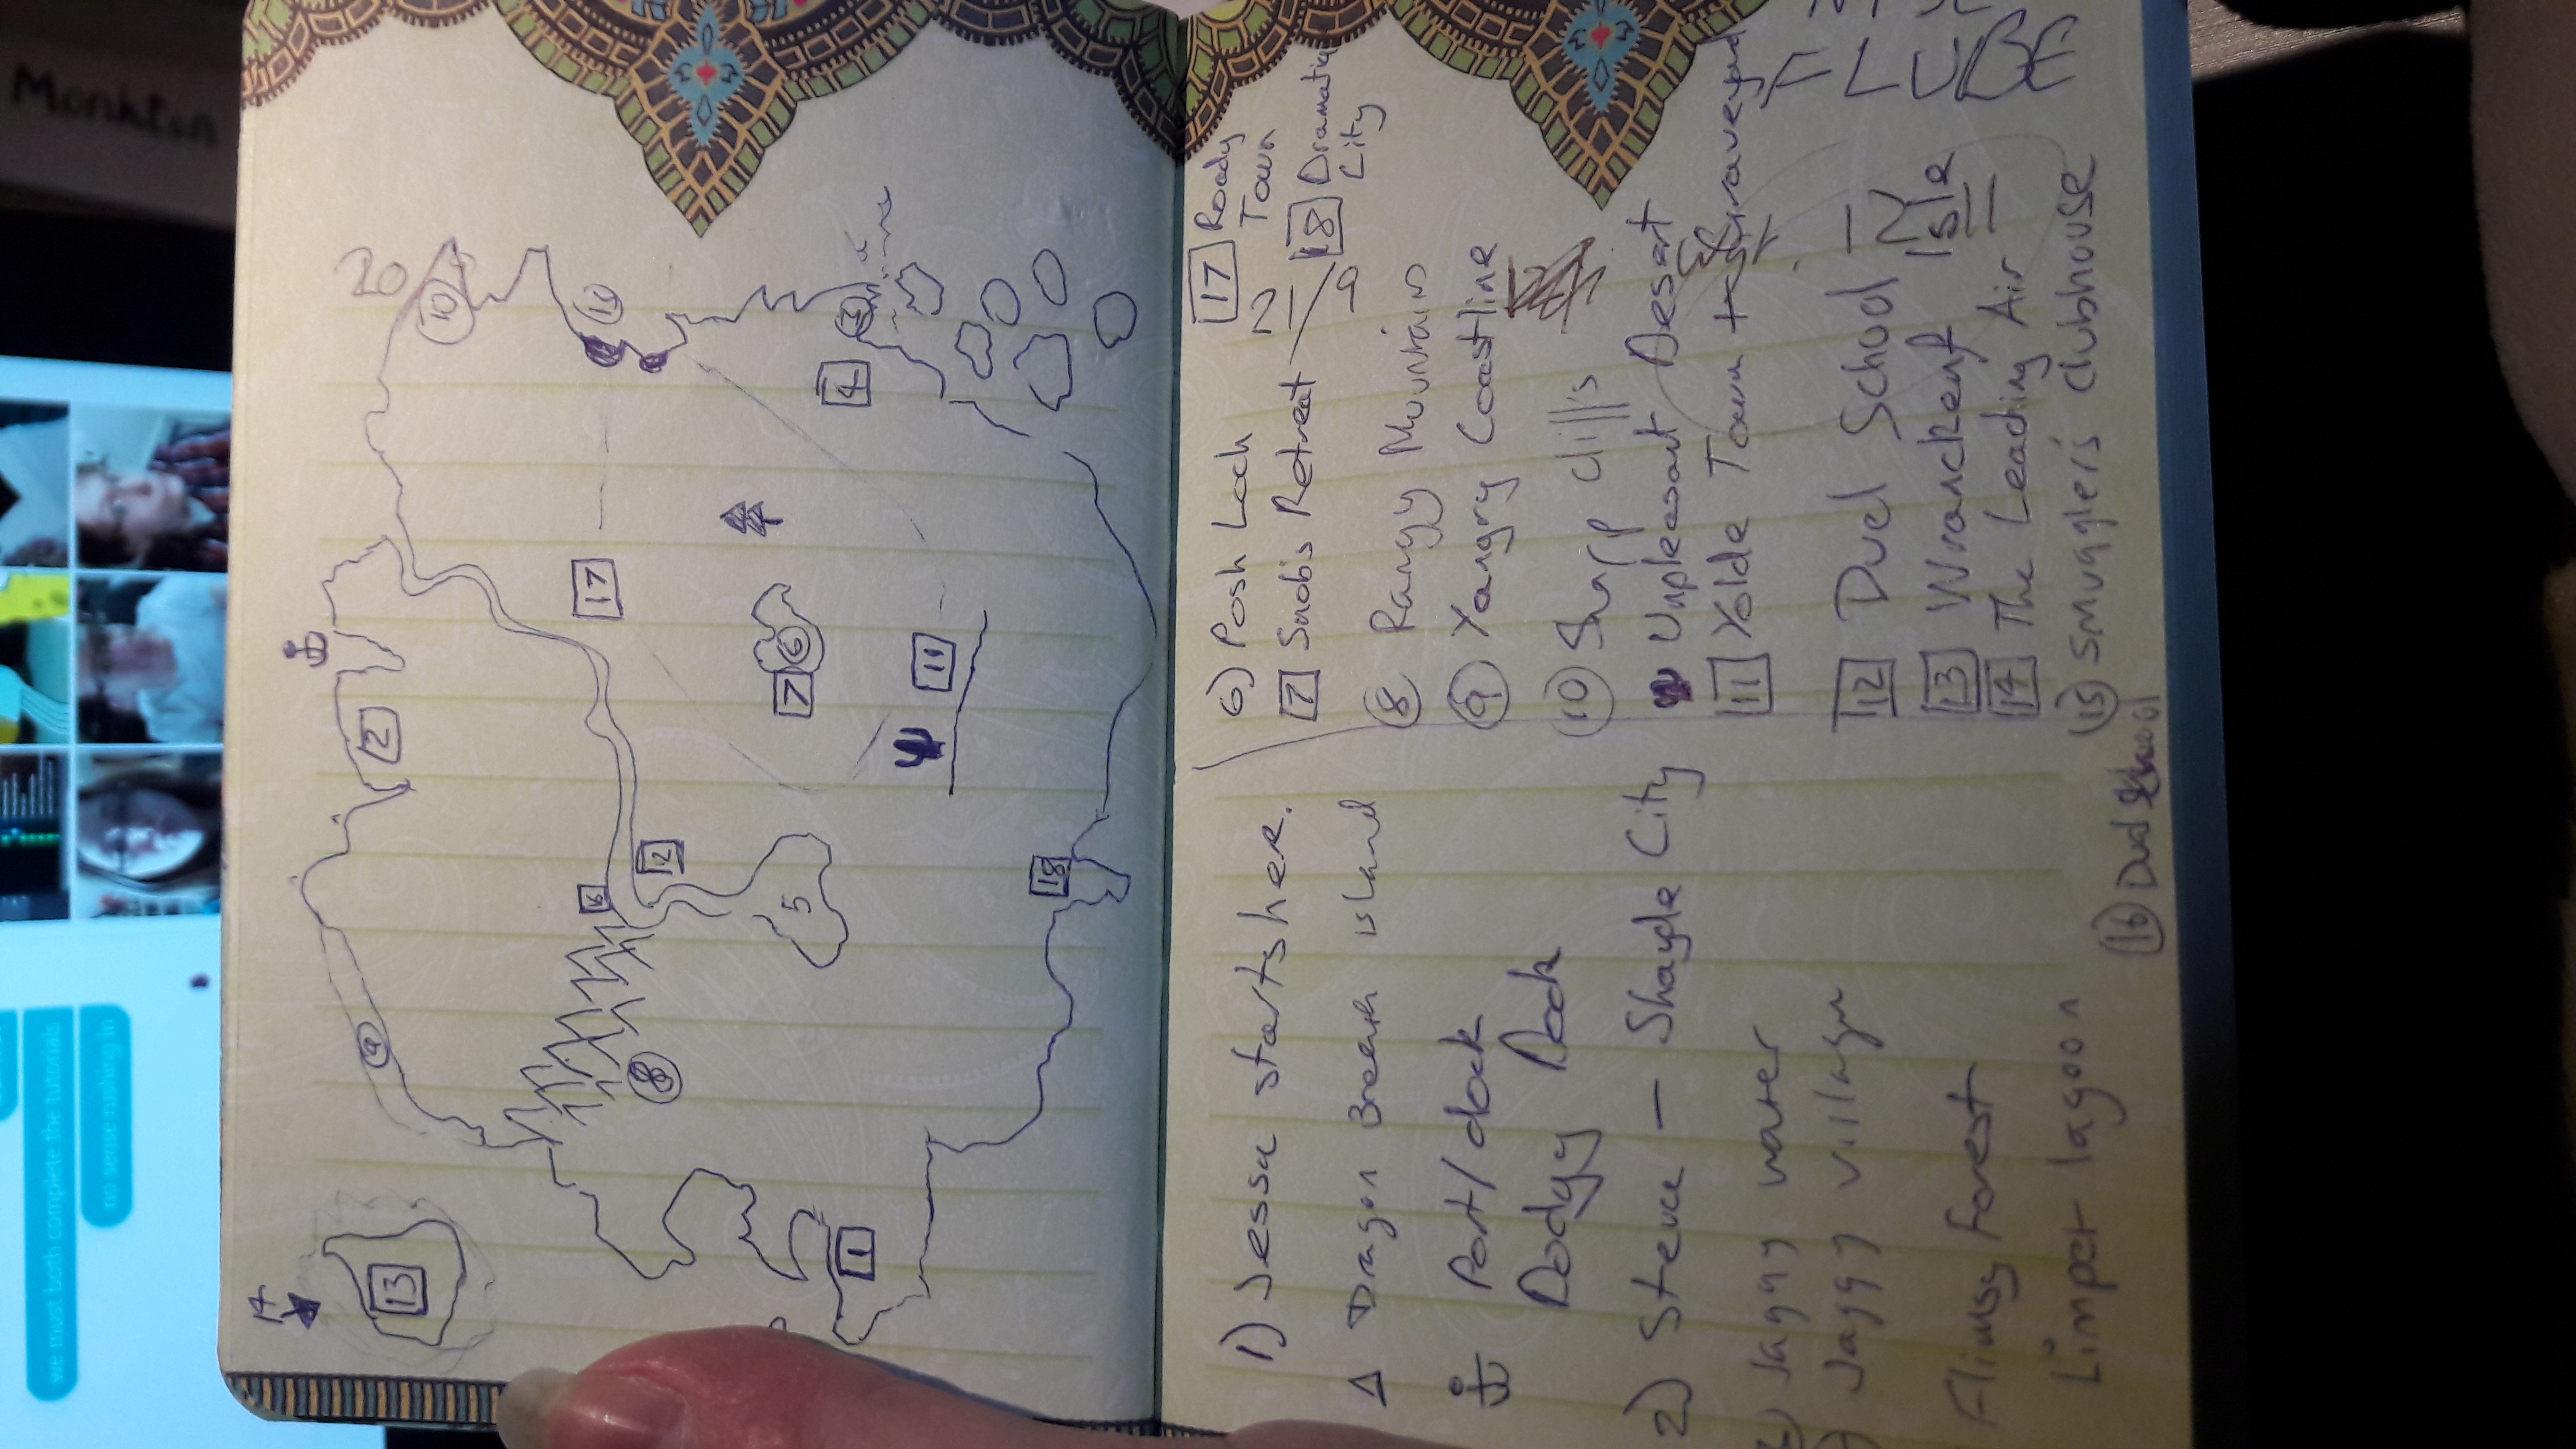 we must both complete the tutorials
no sense rushing in
14
13
9
2
20
10
16
17
12
8
5
7
6
1
4
3
11
18
1) Jessa starts here.
Dragon Breath island
Port/dock
Dodgy Dock
2) Steve — Shayde City
Jaggy water
Jaggy village
Flimsy Forest
Limpet lagoon
6) Posh Loch
7 Snobs Retreat
8 Rangy Mountains
9 Yangry Coastline
10 Sharp cliffs
Unpleasant Desert
11 Yolde Town + Graveyard
12 Duel School
13 Wranckenf Isle
14 The Leaching Air
15 Smuggler's clubhouse
16 Duel School
17 Roady
Town
18 Dramatic
City
21/9
FLUBE